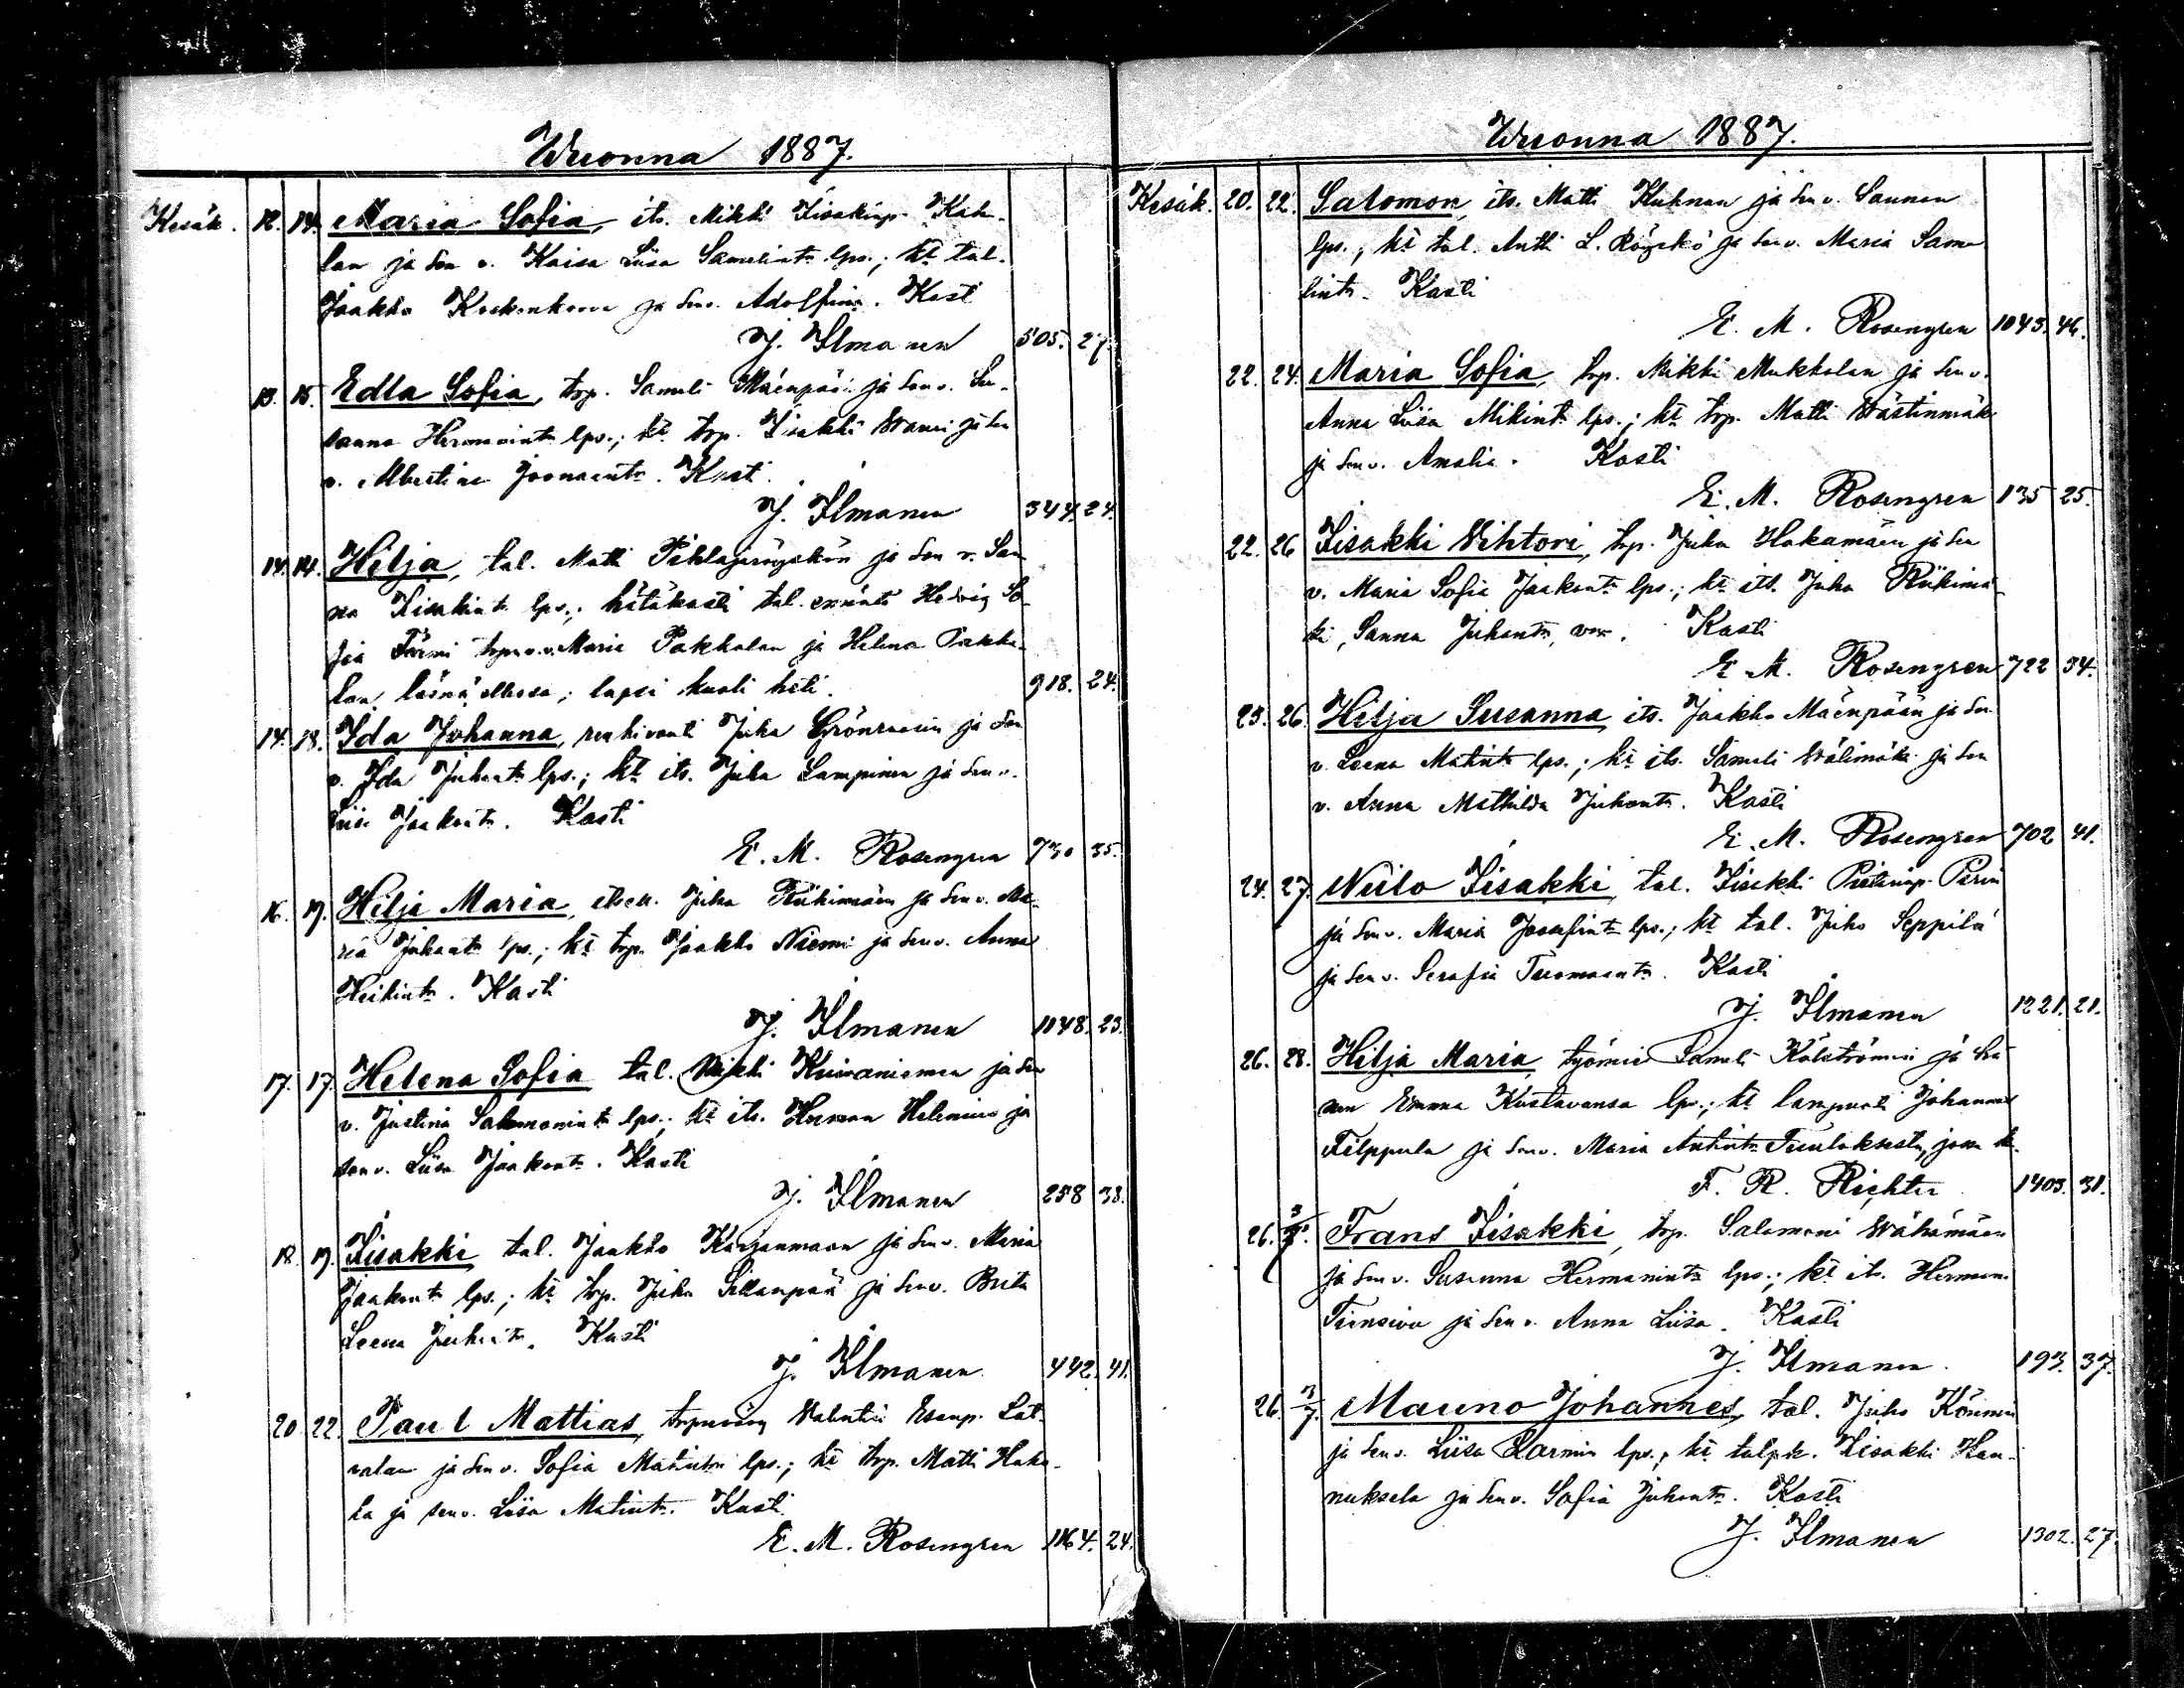 Wuonna 1887.
Kesäk. 12. 14. Maria Sofia, its. Mikki Iisakinp. Kak-
lan ja sen v. Kaisa Liisa Samelintr. lps.; kt tal.
Jaakko ja sen v. Adolfina. Kast.
J. Ilmanen 505. 27.
13. 15. Edla Sofia, trp. Sameli Mäenpään ja sen v. Su-
sanna Hermanintr. lps.; kt. trp. Iisakki ja sen
v. Albertina Joonaantr. Kasti.
J. Ilmanen 344. 24.
14. 14. Hilja, tal. Matti Pihlajaröyskön ja sen v. San
na Iisakintr. lps.; hätäkasti tal. emäntä Hedvig So-
fia trpn. v. Maria Pakkalan ja Helena Pakka-
lan läsnä ollessa; lapsi kuoli heti. 918. 24.
14. 18. Ida Johanna, renkivouti Juha Grönroosin ja sen
v. Ida Juhantr. lps.; kt. its. Juha Lampinen ja sen v.
Liisa Jaakontr. Kasti
E. M. Rosengren 730 35.
16. 19. Hilja Maria, itsell. Juha Riihimäen ja sen v. Ma-
ria Juhantr. lps.; kt trp. Jaakko Niemi ja sen v. Anna
Heikintr. Kasti
J. Ilmanen 1048. 23.
17. 17. Helena Sofia tal. Mikki Kuivaniemen ja sen
v. Justina Salomonintr. lps.; kt its. Herman Helenius ja
sen v. Liisa Jaakontr. Kasti
J. Ilmanen 258 38.
18. 19. Iisakki tal. Jaakko Karjanmaan ja sen v. Maria
Jaakontr. lps.; kt trp. Juha Sillanpää ja sen v. Brita
Leena Juhantr. Kasti
J. Ilmanen 442. 41.
20 22. Paul Mattias, Valentin Esanp. Lat-
valan ja sen v. Sofia Matintr. lps.; kt trp. Matti Haka-
la ja sen v. Liisa Matintr. Kasti
E. M. Rosengren 1164. 24.
Wuonna 1887.
Kesäk. 20. 22. Salomon, its. Matti Kuhnan ja sen v. Sannan
lps.; kt tal. Antti L. Röyskö ja sen v. Maria Same
lintr. Kasti
E. M. Rosengren 1043. 46.
22. 24. Maria Sofia, trp. Mikki Mukkalan ja sen v.
Anna Liisa Mikintr. lps.; kt. trp. Matti Wästinmäki
ja sen v. Amalia. Kasti
E. M. Rosengren 135 25.
22. 26 Iisakki Vihtori, trp. Juha Hakamäen ja sen
v. Maria Sofia Jaakontr. lps.; kt. its. Juha Riihimä-
ki, Sanna Juhantr. Kasti
E. M. Rosengren 722 34.
23. 26. Hilja Susanna, its. Jaakko Mäenpään ja sen
v. Leena Matintr. lps.; kt its. Sameli Wälimäki ja sen
v. Anna Mathilda Juhantr. Kasti
E. M. Rosengren 702 41.
24. 27. Niilo Iisakki, tal. Iisakki Pietarinp.
ja sen v. Maria Josefintr. lps.; kt tal. Juho Seppilä
ja sen v. Serafia Tuomaantr. Kasti
J. Ilmanen 1221. 21.
26. 28. Hilja Maria, työmies Sameli Källströmin ja
Emma Kustavansa lps.; kt lampuoti Johannes
Filppula ja sen v. Maria Antintr. Tuuloksesta,
F. R. Richter 1403. 31.
26. 3/7. Frans Iisakki, trp. Salomoni Wähämäen
ja sen v. Susanna Hermanintr. lps.; kt its. Herman
ja sen v. Anna Liisa. Kasti
J. Ilmanen. 193. 37.
26. 3/7. Mauno Johannes, tal. Juho Könnin
ja sen v. Liisa Karmin lps.; kt Iisakki Han-
nuksela ja sen v. Sofia Juhantr. Kasti
J. Ilmanen 1302. 27.